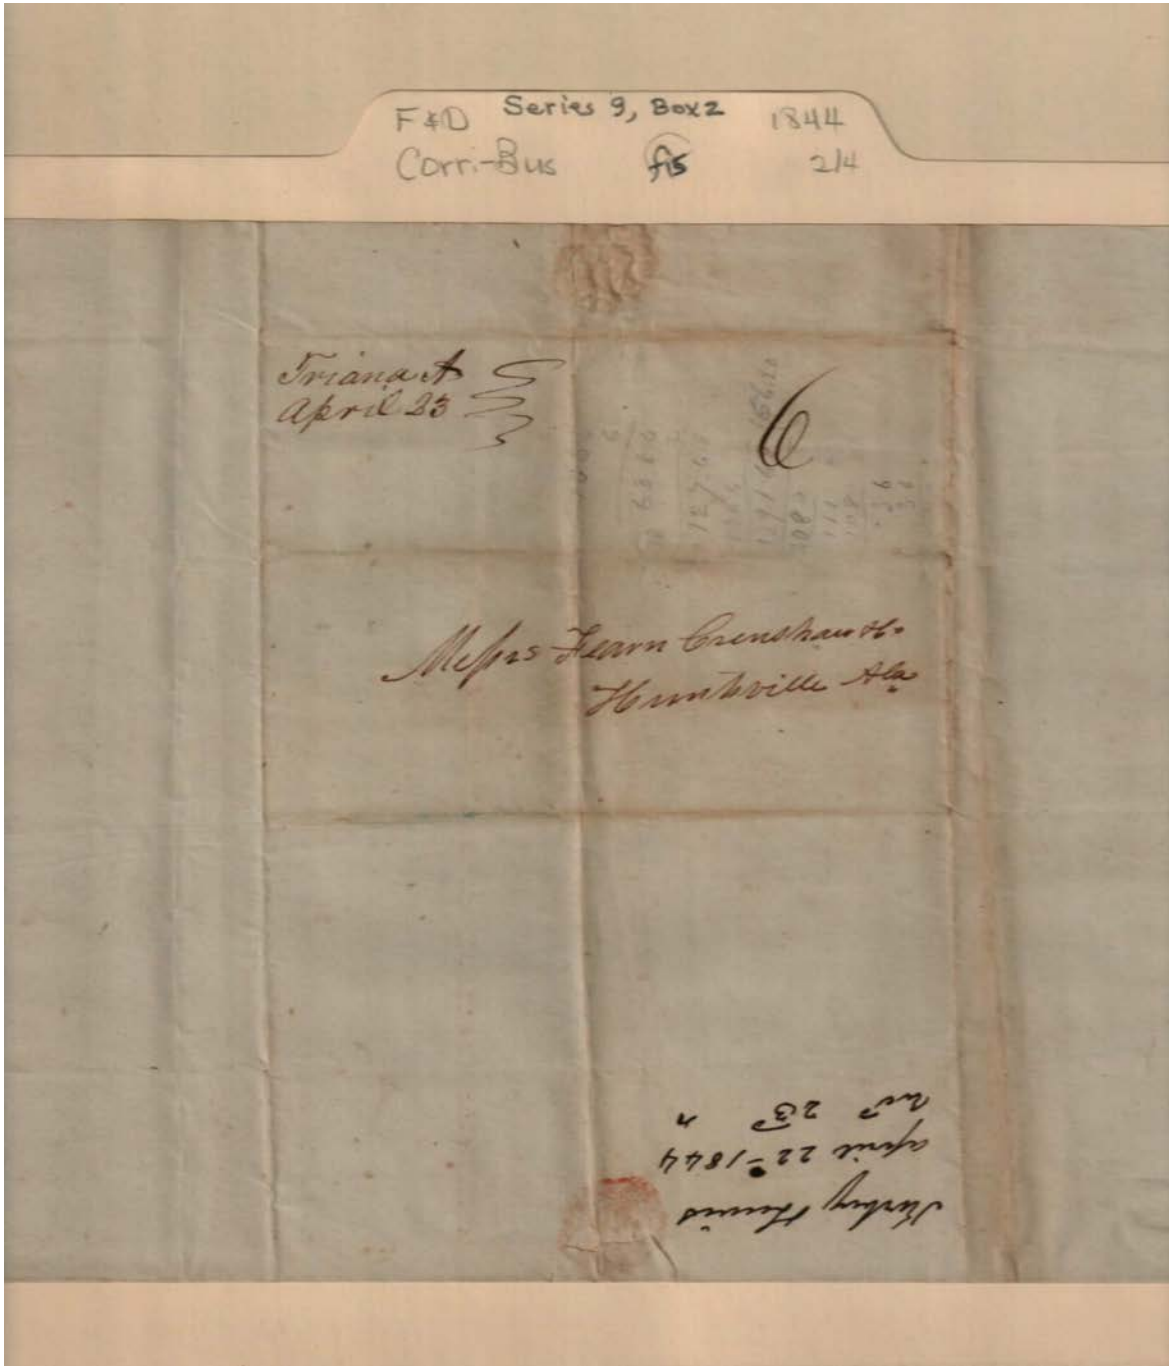 F&D Series 9, Box 2 1844
Corri-Bus f15 2/4
Triana A
April 23
6
Messrs Fearn Crenshaw & Co
Huntsville Ala
12768
April 22d 1844
Recd 23d "